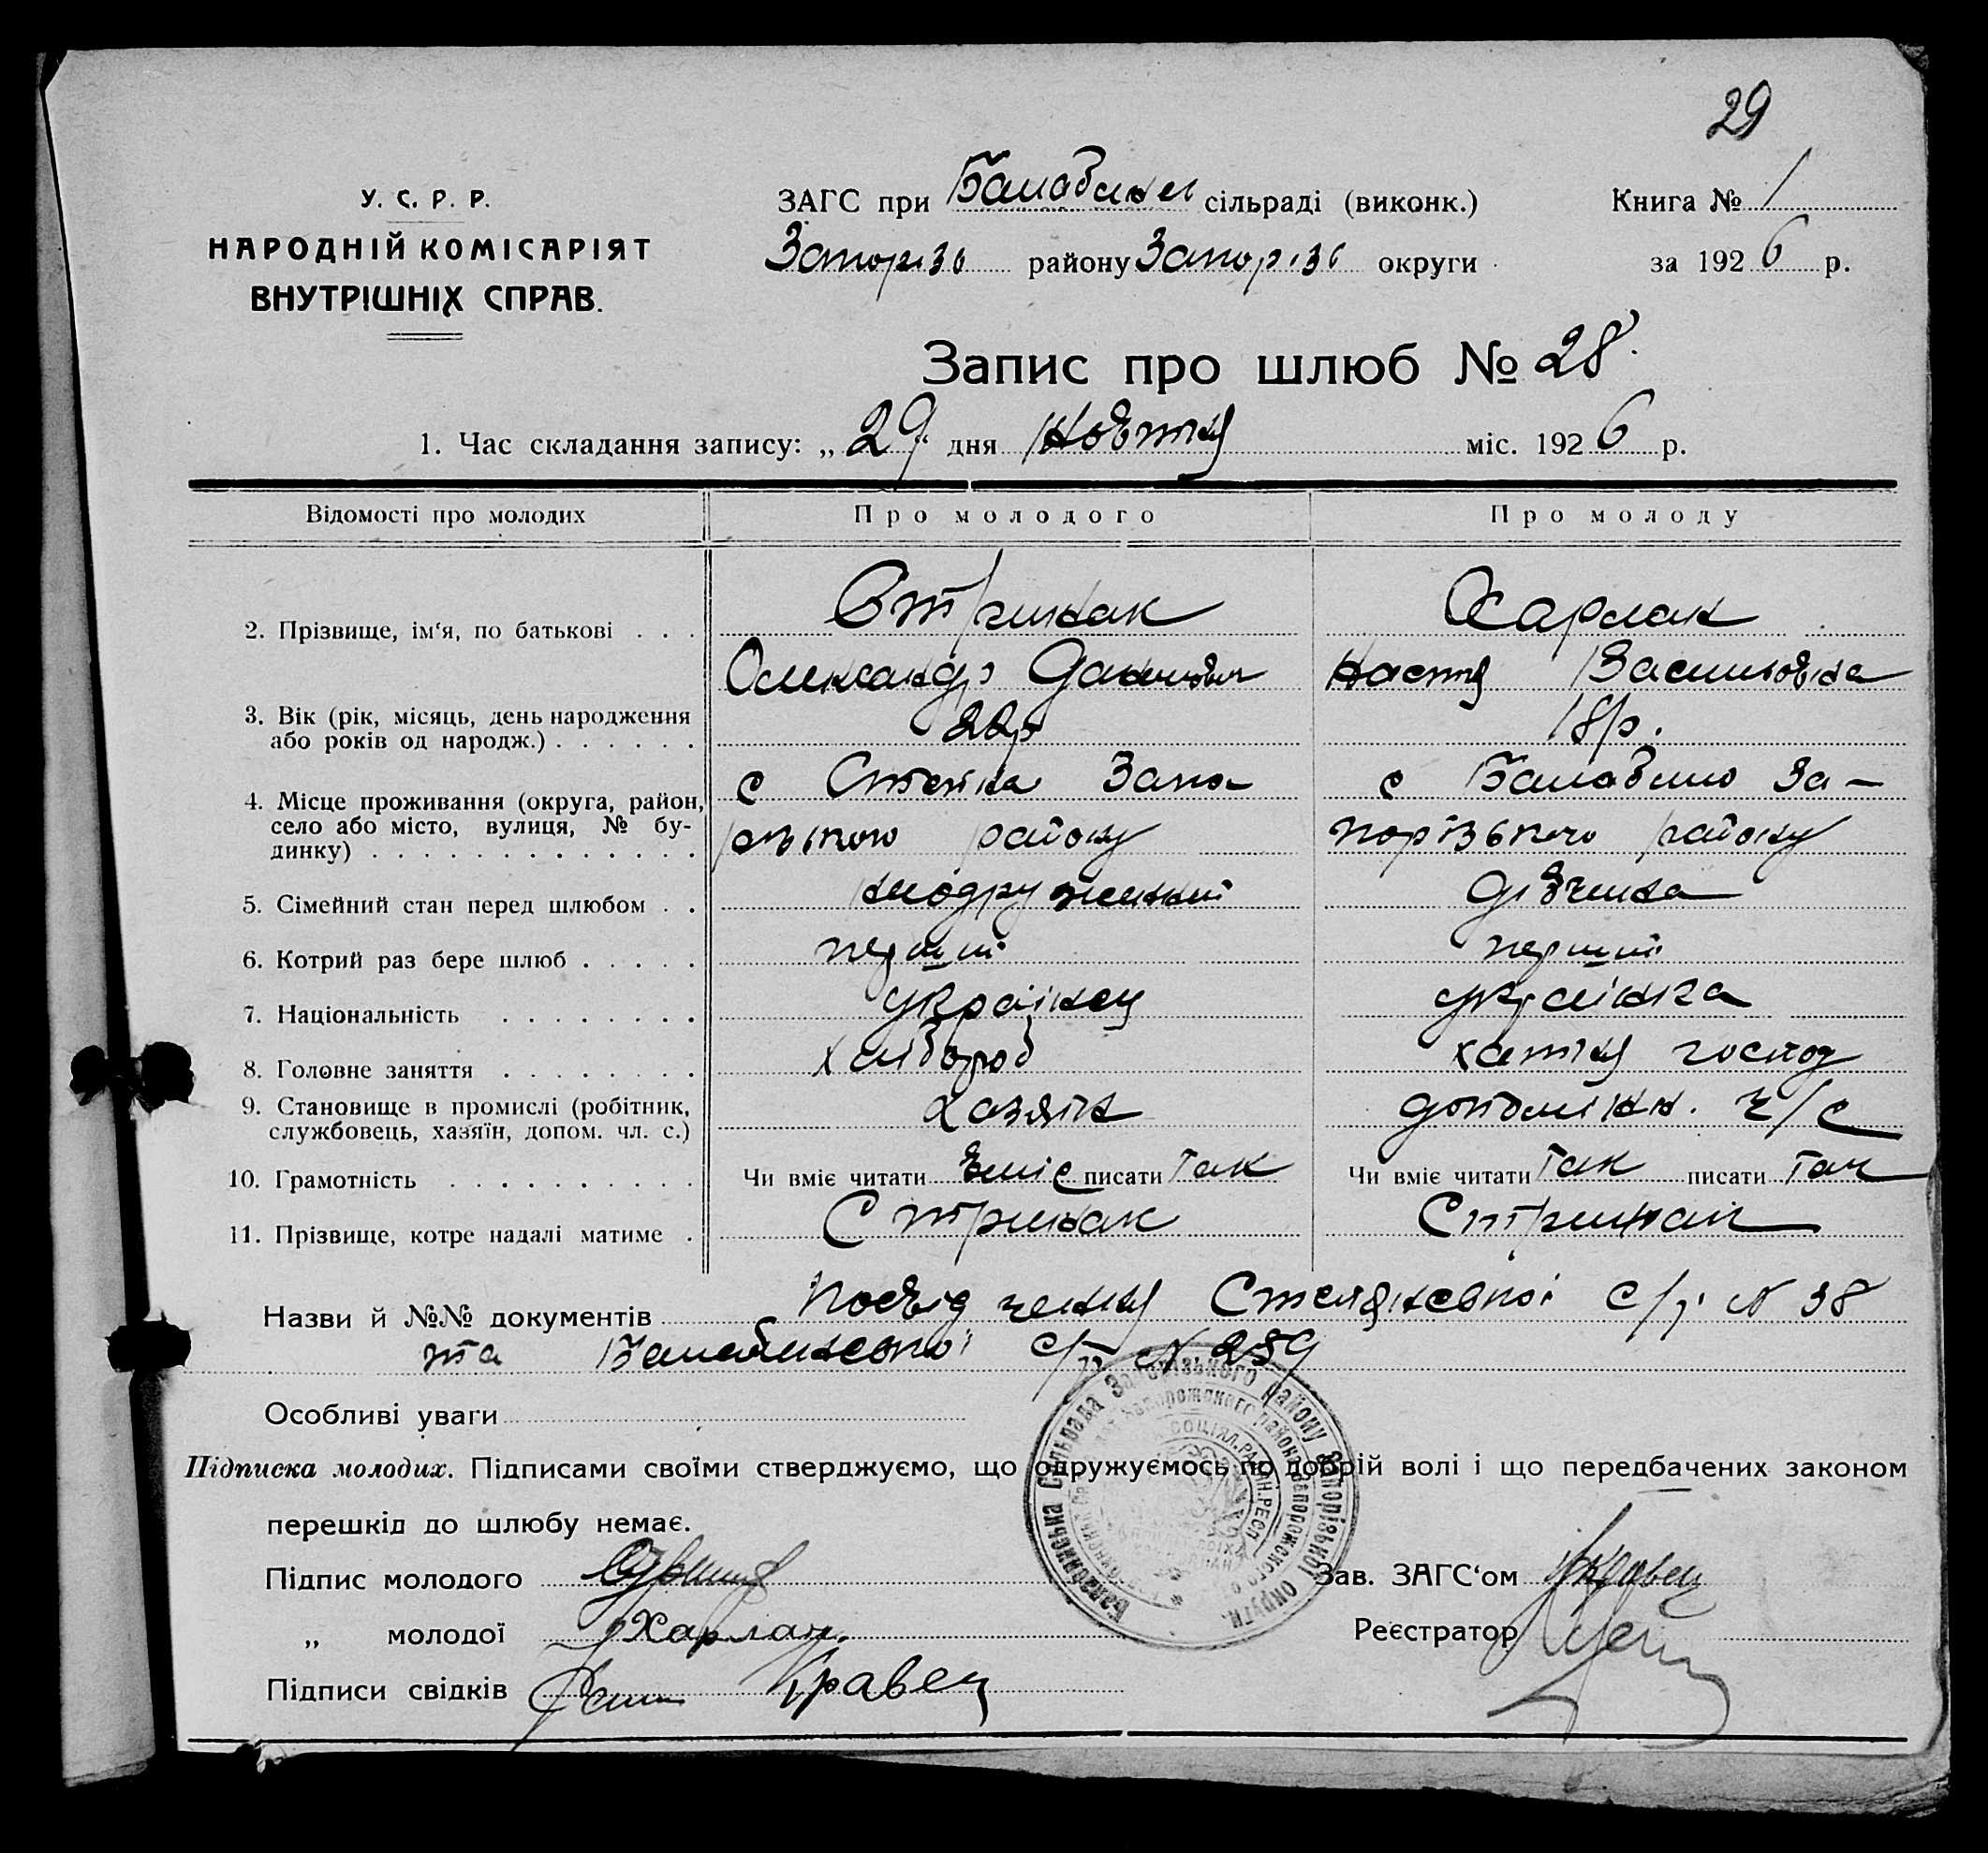 29
У. С. Р. Р.
НАРОДНІЙ КОМІСАРІЯТ
ВНУТРІШНІХ СПРАВ.
ЗАГС при Балабинск сільраді (виконк.)
Запорізь району Запорізь округи
Книга № 1
за 1926 р.
Запис про шлюб № 28.
1. Час складання запису: „29" дня Жовтня міс. 1926 р.
Відомості про молодих Про молодого Про молоду
2. Прізвище, ім'я, по батькові . . . Стринжак Харлан
Олександр Данилович Настя Василівна
3. Вік (рік, місяць, день народження
або років од народж.) . . . . . . 22р 18р.
4. Місце проживання (округа, район,
село або місто, вулиця, № бу-
динку) . . . . . . . . . . . . .
с Запо- с Балабино За-
різького району порізького району
5. Сімейний стан перед шлюбом . . неодружений дівчина
6. Котрий раз бере шлюб . . . . . перший перший
7. Національність . . . . . . . . українец українка
8. Головне заняття . . . . . . . . хлібороб хатня господ
9. Становище в промислі (робітник,
службовець, хазяїн, допом. чл. с.) хазяїн допоміжн. ч/с
10. Грамотність . . . . . . . . . . Чи вміє читати вміє писати так Чи вміє читати так писати так
11. Прізвище, котре надалі матиме . Стринжак Стринжак
Назви й №№ документів Посвідчення С/р N 38
та Балабинської С/р N 259
Особливі уваги
Підписка молодих. Підписами своїми стверджуємо, що одружуємось по добрій волі і що передбачених законом
перешкід до шлюбу немає.
Підпис молодого
„ молодої Харлан.
Підписи свідків Кравец
Зав. ЗАГС'ом Кравец
Реєстратор
Балабинська Сільрада Запорізького Району Запорізької округи.